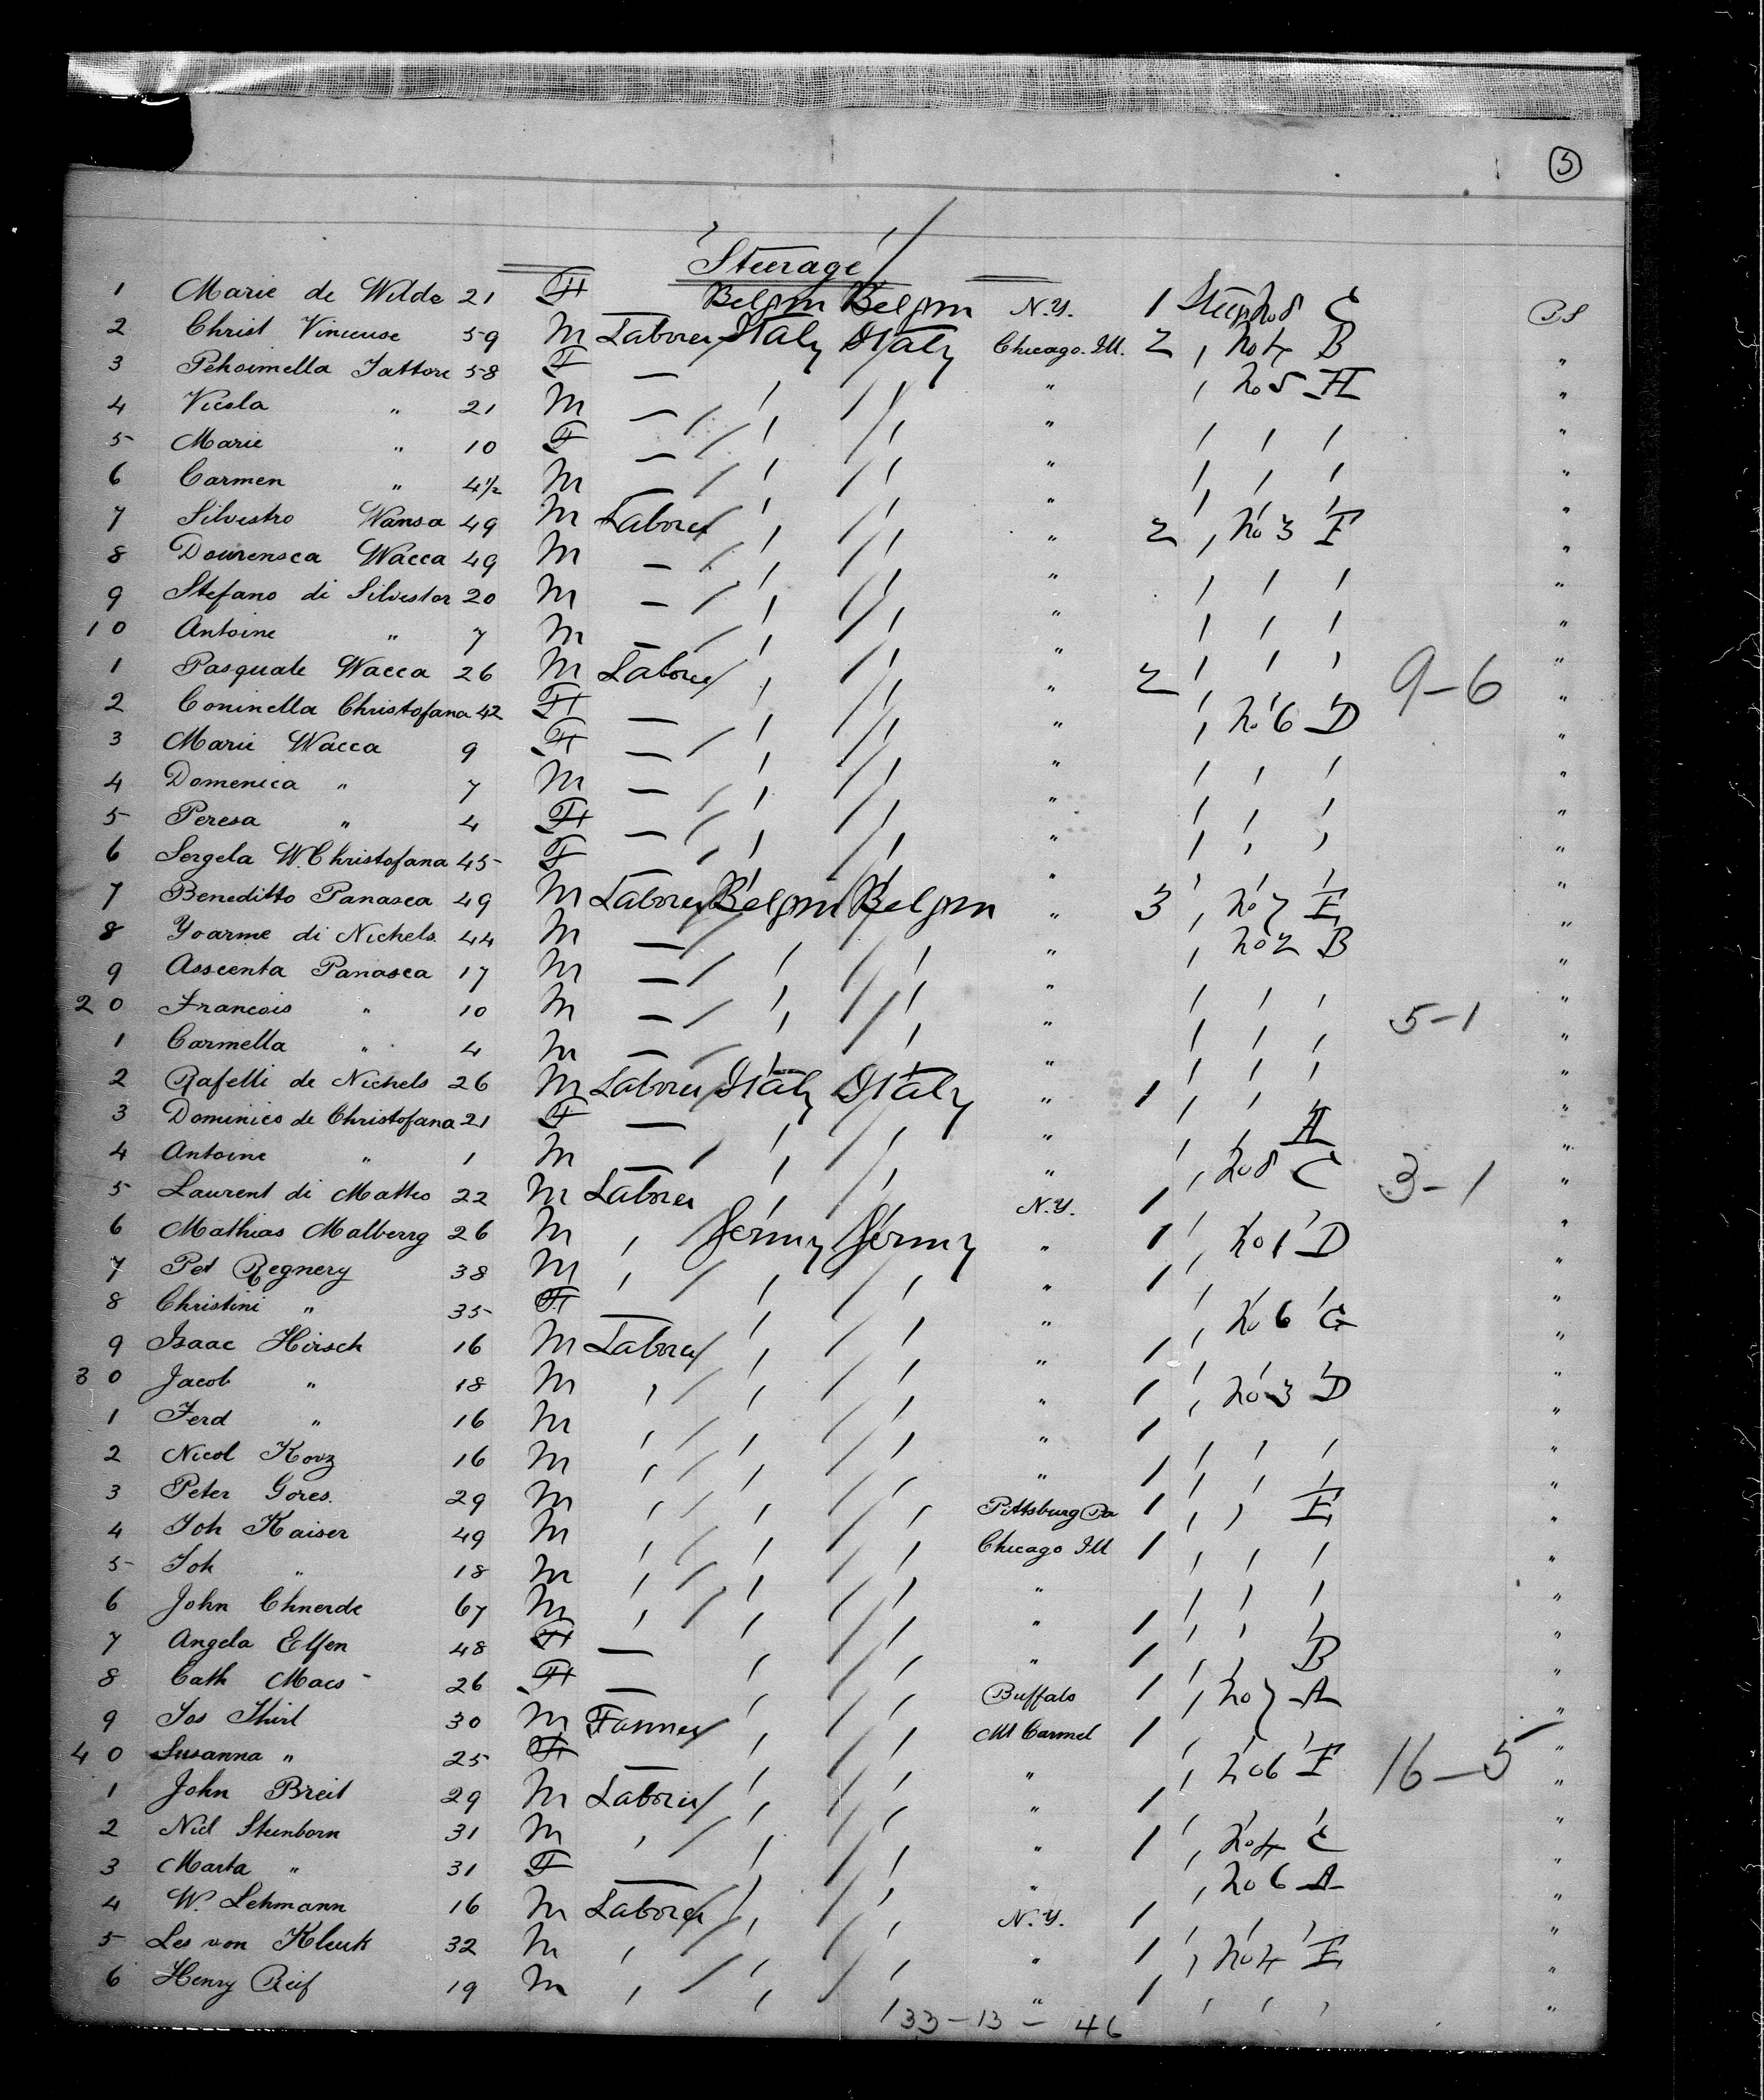 5
Steerage
1 Marie de Wilde 21 F Belgm Belgm N.Y. 1 Steer No 8 C PS
2 Christ Vincuse 59 M Laborer Italy Italy Chicago. Ill. 2 , No 4 B "
3 Pehoimella Fattore 58 F — " , No 5 H "
4 Vicola " 21 M — " "
5 Marie " 10 F — " "
6 Carmen " 4½ M — " "
7 Silvestro Wansa 49 M Laborer " 2 , No 3 F "
8 Dourensca Wacca 49 M — " "
9 Stefano di Silvester 20 M — " "
10 Antoine " 7 M — " "
1 Pasquale Wacca 26 M Laborer " 2 9-6 "
2 Coninella Christofana 42 F — " , No 6 D "
3 Marie Wacca 9 F — " "
4 Domenica " 7 M — " "
5 Peresa " 4 F — " "
6 Sergela W. Christofana 45 F " "
7 Beneditto Panasca 49 M Laborer Belgm Belgm " 3 , No 7 E "
8 Yoarme di Nichels 44 M — " , No 2 B "
9 Asscenta Panasca 17 M — " "
20 Francois " 10 M — " 5-1 "
1 Carmella " 4 M — " "
2 Rafelli de Nichels 26 M Laborer Italy Italy " 1 "
3 Dominico de Christofana 21 F — " H "
4 Antoine " 1 M — " , No 8 C 3-1 "
5 Laurent di Matteo 22 M Laborer N.Y. 1 "
6 Mathias Malberrg 26 M , Germy Germy " 1 , No 1 D "
7 Pet Regnery 38 M , " 1 "
8 Christini " 35 F — " , No 6 G "
9 Isaac Hirsch 16 M Laborer " 1 "
30 Jacob " 18 M , " 1 , No 3 D "
1 Ferd " 16 M , " 1 "
2 Nicol Korz 16 M , " 1 "
3 Peter Gores. 29 M , Pittsburg Pa 1 E "
4 Joh Kaiser 49 M , Chicago Ill 1 "
5 Joh " 18 M , " "
6 John Chnerde 67 M , " 1 "
7 Angela Elfen 48 F — " 1 B "
8 Cath Macs 26 F — Buffalo 1 , No 7 A "
9 Jos Thirl 30 M Farmer Mt Carmel 1 "
40 Susanna " 25 F — " , No 6 F 16-5 "
1 John Breit 29 M Laborer " 1 "
2 Nicl Steinborn 31 M , " 1 , No 4 C "
3 Marta " 31 F — " , No 6 A "
4 W. Lehmann 16 M Laborer N.Y. 1 "
5 Leo von Kleuk 32 M , " 1 , No 4 E "
6 Henry Reif 19 M , " 1 "
33-13-46